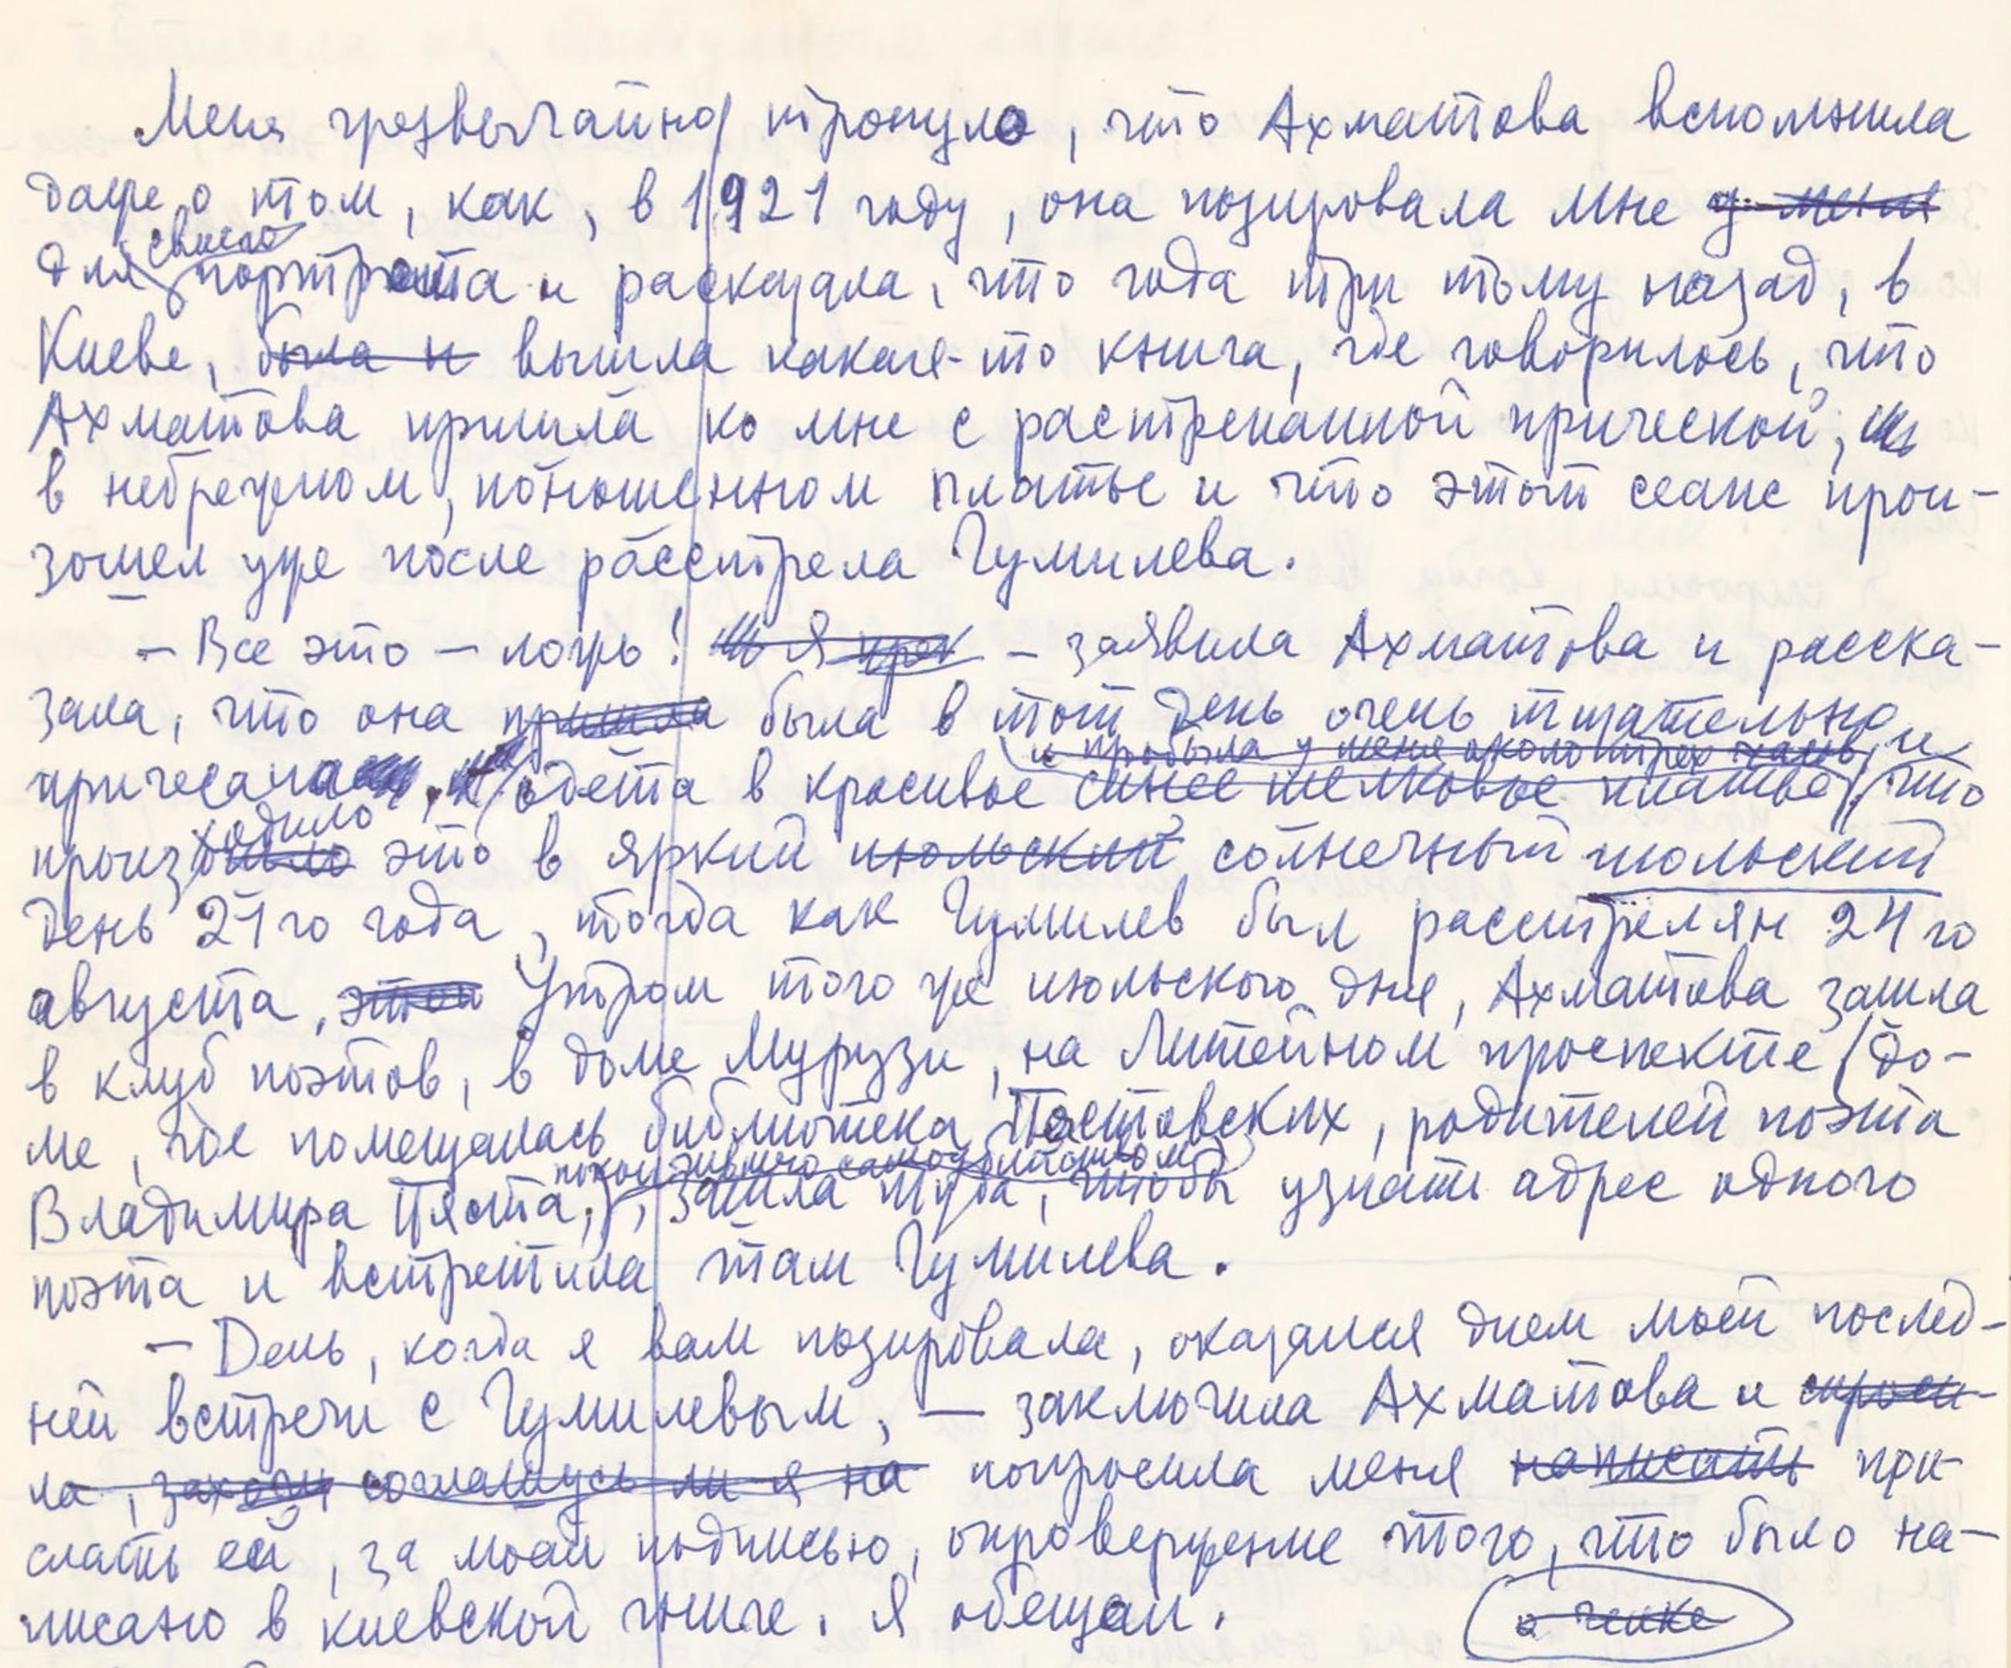 Меня чрезвычайно тронуло, что Ахматова вспомнила
даже о том, как, в 1921 году, она позировала мне у меня
для своего портрета и рассказала, что года три тому назад, в
Киеве, была и вышла какая-то книга, где говорилось, что
Ахматова пришла ко мне с растрепанной прической,
в небрежном, поношенном платье и что этот сеанс прои-
зошел уже после расстрела Гумилева.
– Все это – ложь! Я – заявила Ахматова и расска-
зала, что она пришла была в тот день очень тщательно
и пробыла у меня около трех часов, и
причесана, одета в красивое синее шелковое платье, что
ходило
произошло это в яркий июльский солнечный июльский
день 21го года, тогда как Гумилев был расстрелян 24го
августа, этой Утром того же июльского дня, Ахматова зашла
в клуб поэтов, в доме Мурузи, на Литейном проспекте (до-
ме, где помещалась библиотека Пестовских, родителей поэта
покончившего самоубийством)
Владимира Пяста, зашла туда, чтобы узнать адрес одного
поэта и встретила там Гумилева.
– День, когда я вам позировала, оказался днем моей послед-
ней встречи с Гумилевым, – заключила Ахматова и спроси-
ла, соглашусь ли я на попросила меня написать при-
слать ей, за моей подписью, опровержение того, что было на-
писано в киевской книге. Я обещал.